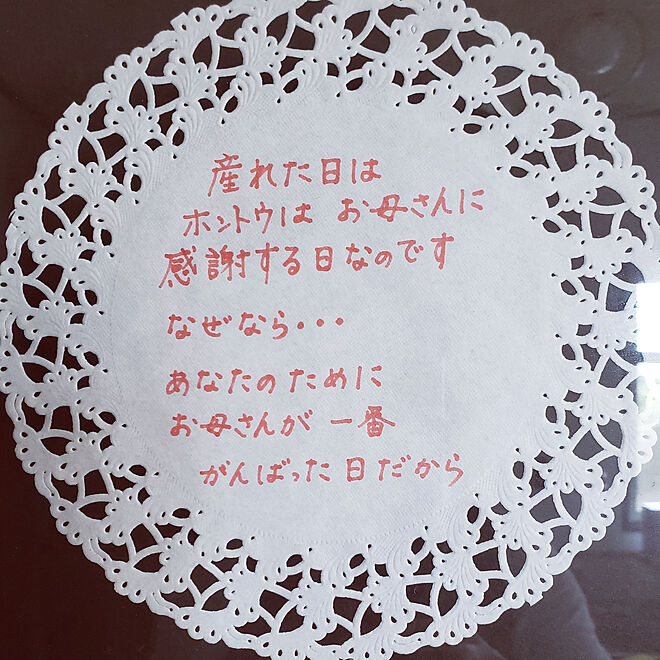 産れた日は
ホントウは お母さんに
感謝する日なのです
なぜなら・・・
あなたのために
お母さんが 一番
がんばった日だから